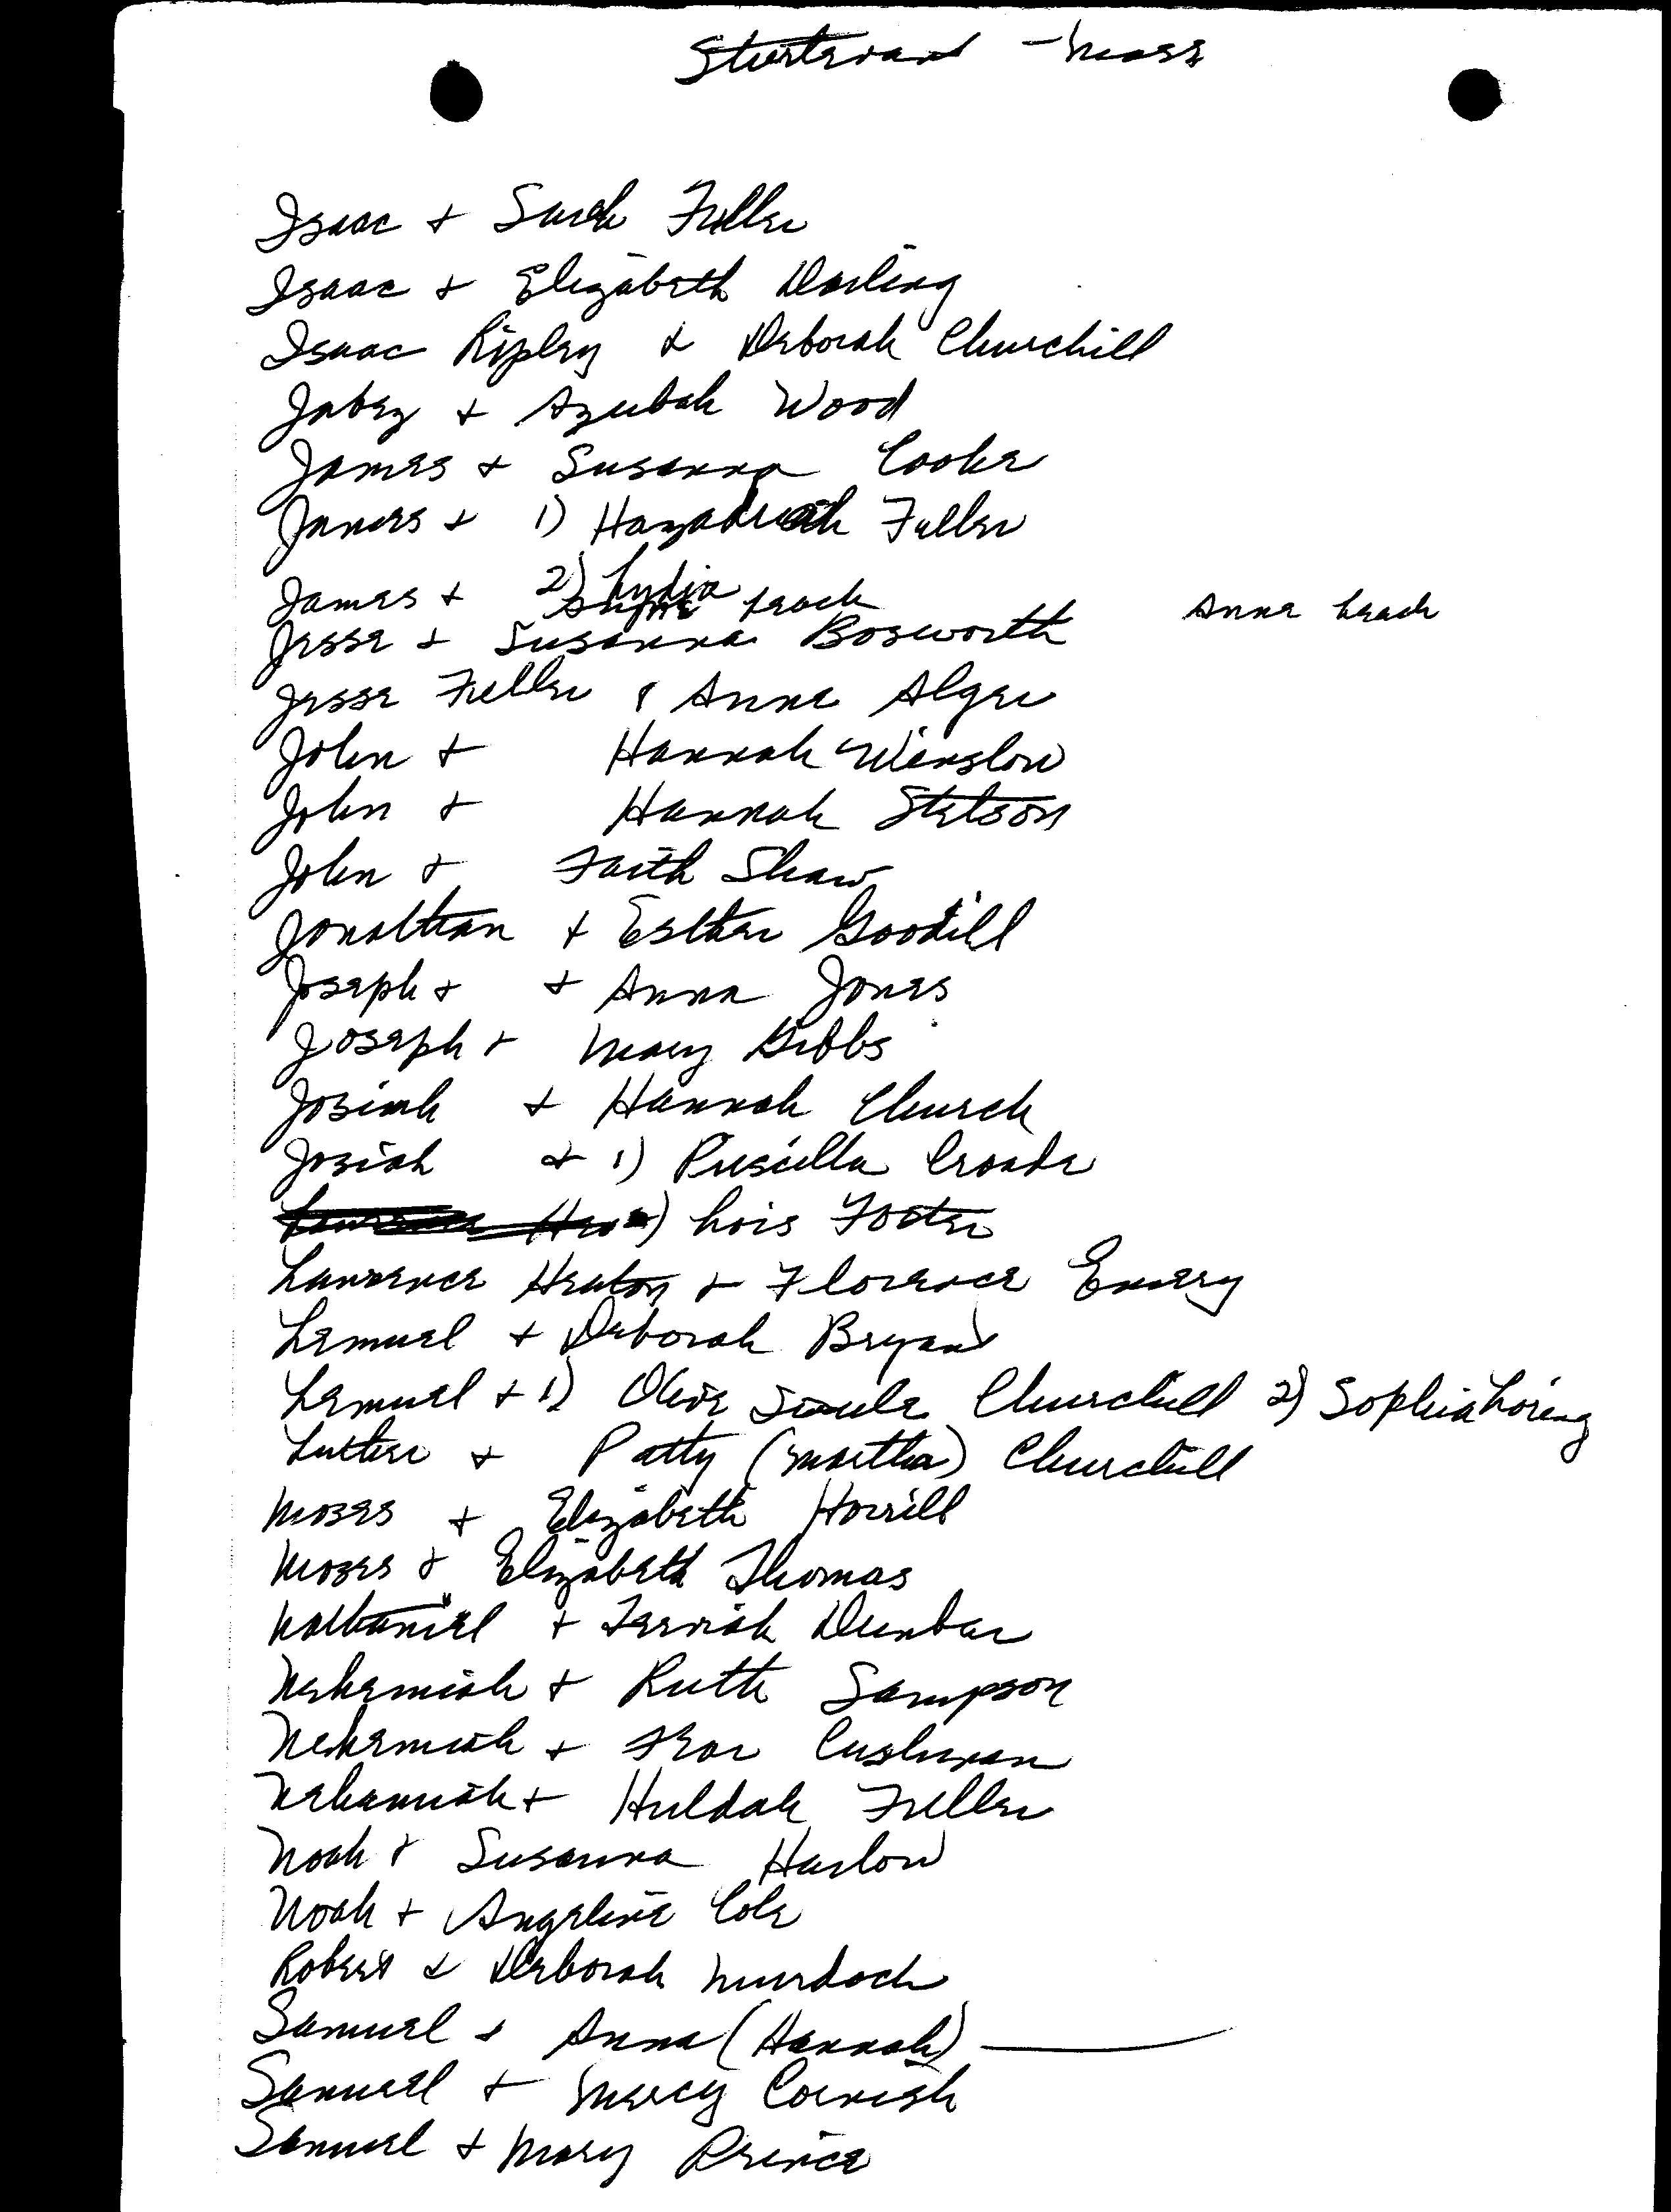 Sturtevant - Mass
Isaac + Sarah Fuller
Isaac + Elizabeth Darling
Isaac Ripley & Deborah Churchill
Jabez + Azubah Wood
James + Susanna Cooke
James + 1) Fuller
James + 2) Lydia Leach Anne Leach
Jesse + Susanna Bosworth
Jesse Fuller & Anne Alger
John + Hannah Winslow
John + Hannah Stetson
John + Faith Shaw
Jonathan + Esther Goodill
Joseph + + Anna Jones
Joseph + Mary Gibbs
Josiah + Hannah Church
Josiah + 1) Priscilla Croade
2) Lois Foster
Lawrence Heaton + Florence Emery
Lemuel + Deborah Bryant
Lemuel + 1) Olive Soule Churchill 2) Sophia Loring
Luther + Patty (Martha) Churchill
Moses + Elizabeth Horrill
Moses + Elizabeth Thomas
Nathaniel + Dunbar
Nehemiah + Ruth Sampson
Nehemiah + Fear Cushman
Nehemiah + Huldah Fuller
Noah + Susanna Harlow
Noah + Angeline Cole
Robert & Deborah Murdock
Samuel + Anna (Hannah)
Samuel + Mercy Cornish
Samuel + Mary Prince